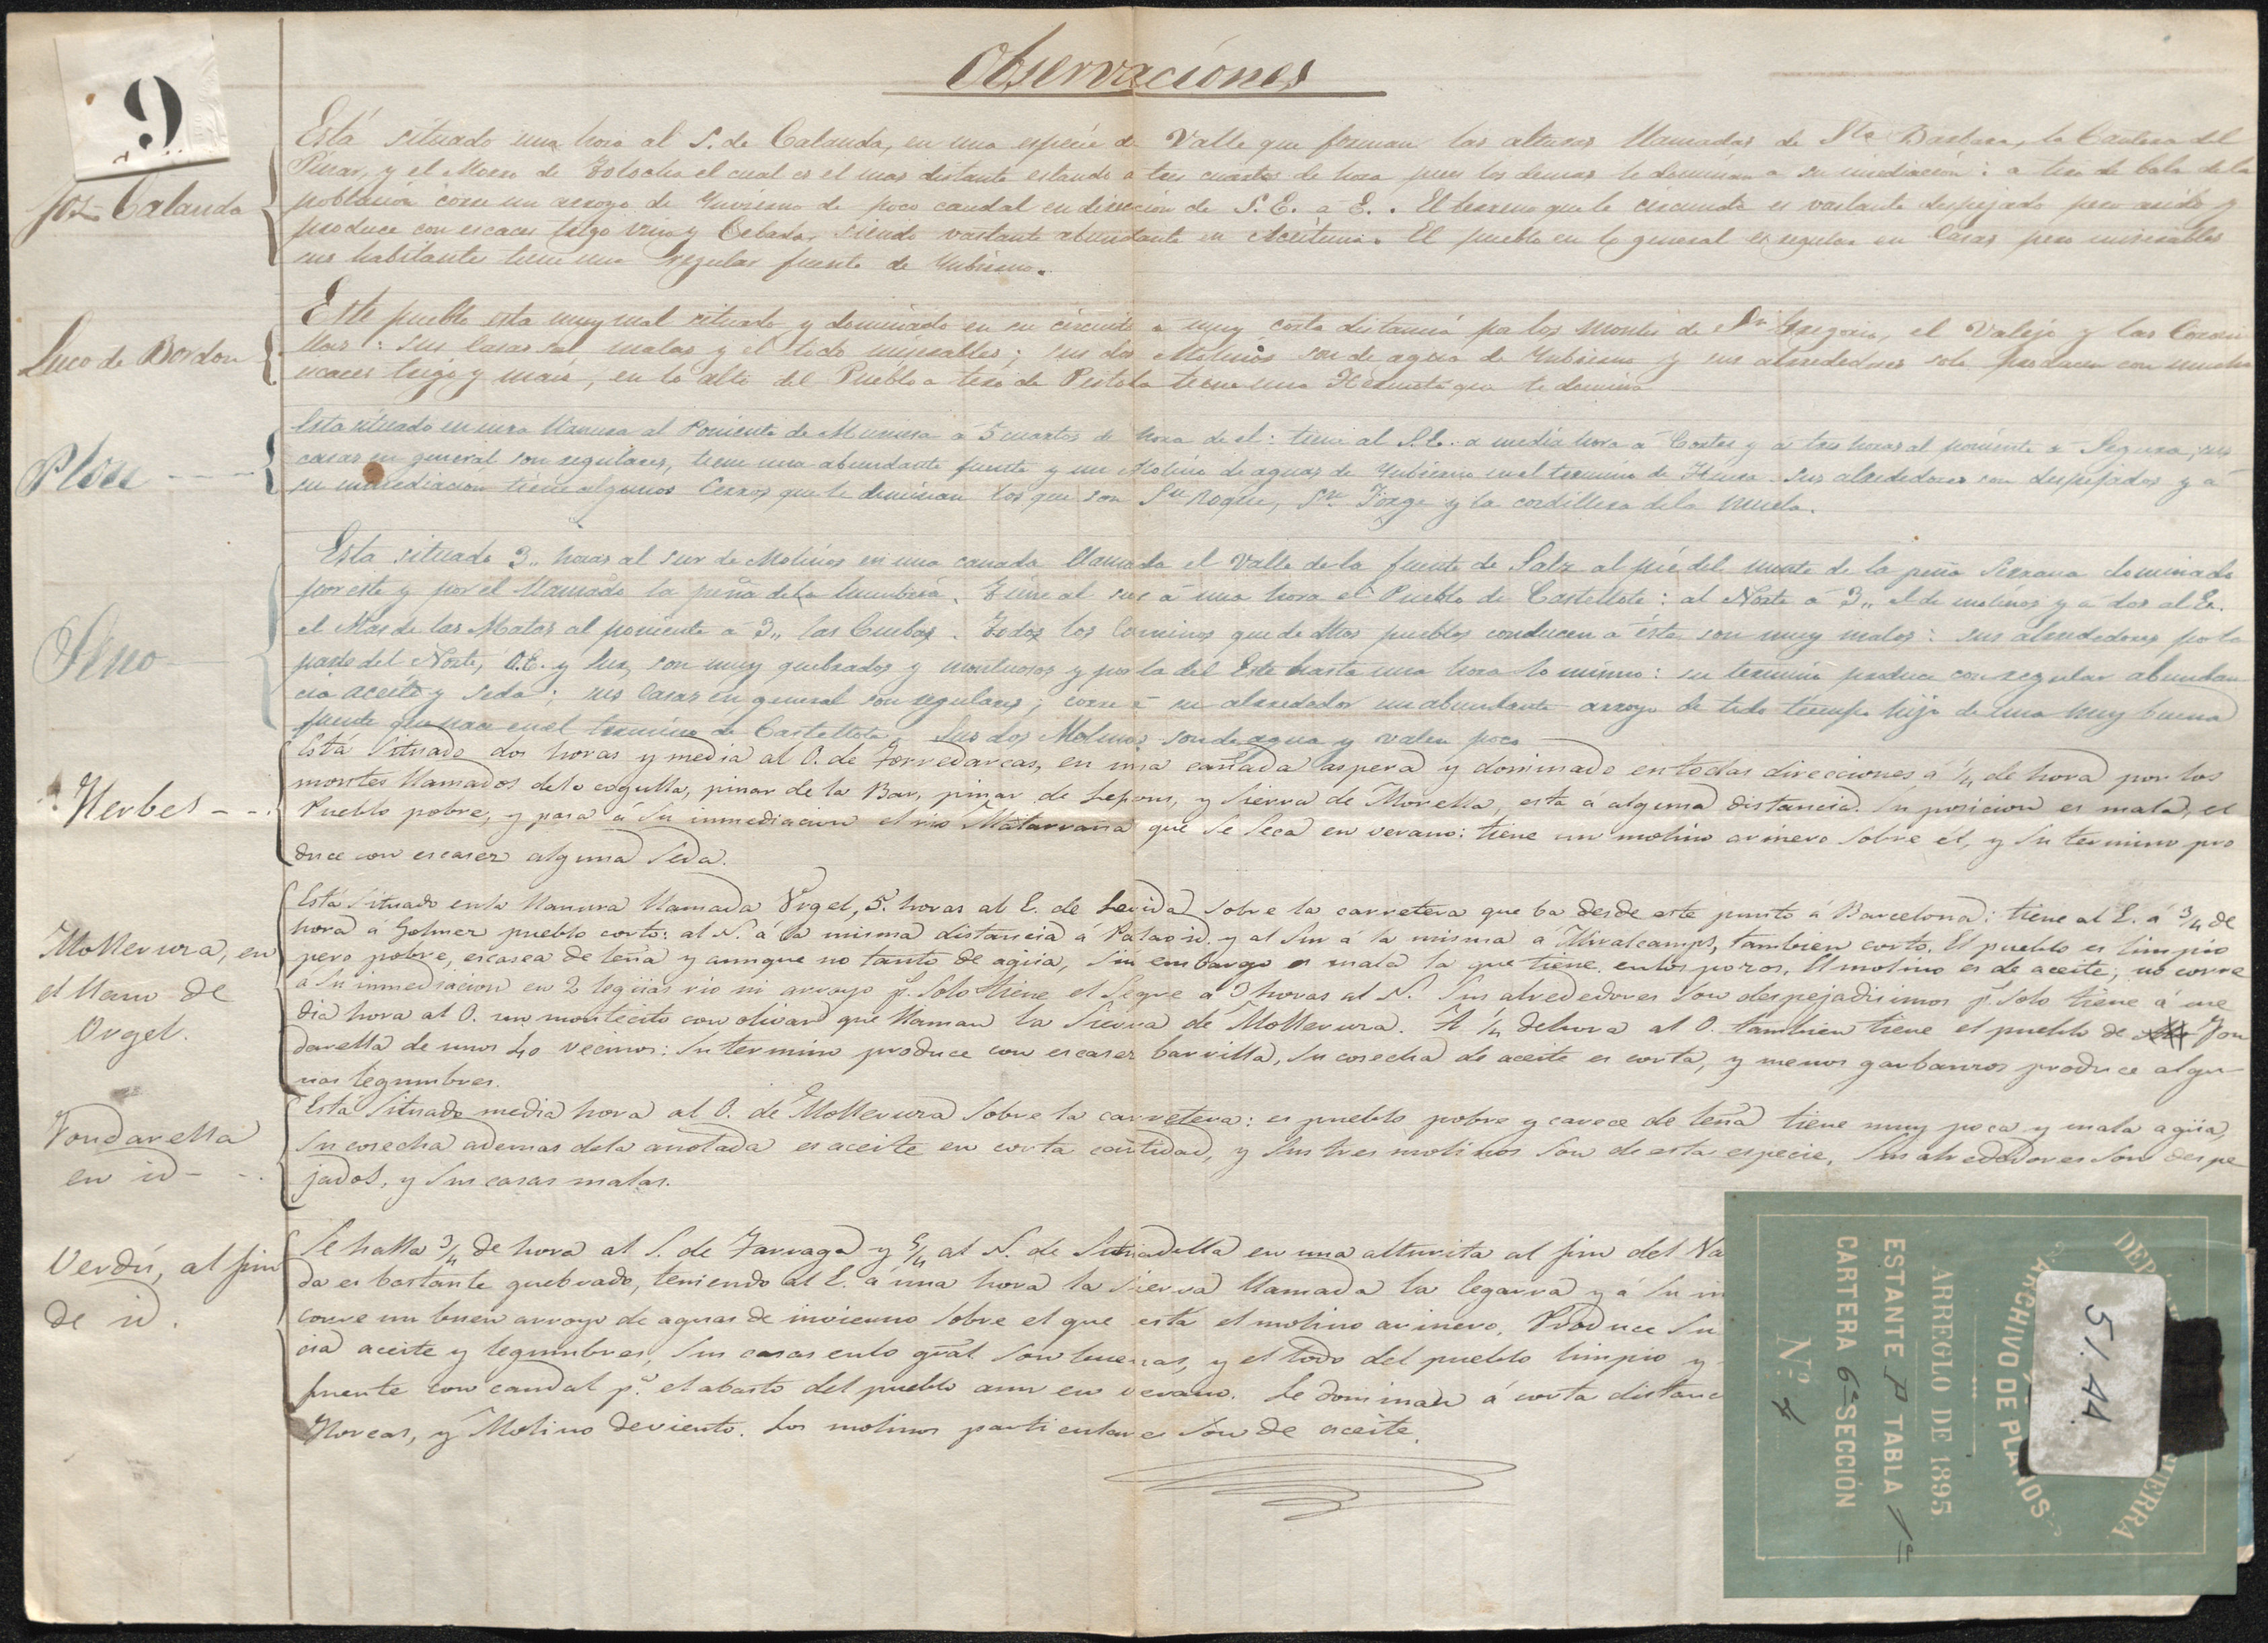 9
Observaciones
Foz-Calanda
Está situado una hora al S. de Calanda, en una especie de Valle que forman las alturas llamadas de Sta Barbara, la Cantera del
Pinar, y el Morro de Tolocha el cual es el mas distante estando a tres cuartos de hora pues los demas le dominan a su inmediación: a tiro de bala de la
población corre un arroyo de Ynvierno de poco caudal en dirección de S.E. á E. El terreno que le circunda es vastante despejado pero arido y
produce con escaces trigo vino y Cebada, siendo vastante abundante en Aceituna. El pueblo en lo general es regular en Casas pero miserables
sus habitantes tiene una regular fuente de Ynbierno.
Luco de Bordon
Este pueblo esta muy mal situado y dominado en su circuito a muy corta distancia por los montes de Sn Gregorio, el Valejo y las
llas: sus Casas son malas y el todo miserables; sus dos Molinos son de agua de Ynbierno y sus alrededores solo producen con mucha
escaces trigo y maiz, en lo alto del Pueblo a tiro de Pistola tiene una Hermita que le domina
Plou
Esta situado en una llanura al Poniente de Muniesa a 5 cuartos de hora de el: tiene al S.E. a media hora a Cortes y a tres horas al poniente a Segura; sus
casas en general son regulares, tiene una abundante fuente y un Molino de aguas de Ynbierno en el termino de Huesa. Sus alrededores son despejados y a
su inmediacion tiene algunos Cerros que le dominan los que son Sn Roque, Sn Jorge y la cordillera de la muela.
Seno
Esta situado 3,, horas al sur de Molinos en una cañada llamada el Valle de la fuente de Salz al pié del monte de la peña Serrana dominado
por este y por el llamado la peña de la Humbria. Tiene al sur á una hora el Pueblo de Castellote: al Norte á 3,, el de molinos y a dos al E.
el Mas de las Matas al poniente á 3,, las Cuebas. Todos los Caminos que de dhos pueblos conducen a éste son muy malos: sus alrededores por la
parte del Norte, O.E. y Sur, son muy quebrados y montuosos y por la del Este hasta una hora lo mismo: su termino produce con regular abundan
cia aceite y seda; sus Casas en general son regulares; corre á su alrededor un abundante arroyo de todo tiempo hijo de una muy buena
fuente que nace en el termino de Castellote, Sus dos Molinos son de agua y valen poco
Herbes
Está situado dos horas y media al O. de Torredarcas, en una cañada aspera y dominado en todas direcciones a 1/4 de hora por los
montes llamados de la cogulla, pinar de la Bar, pinar de Lepons, y Sierra de Morella, esta á alguna distancia. Su posicion es mala, el
Pueblo pobre, y pasa á su inmediacion el rio Matarraña que se seca en verano: tiene un molino arinero sobre él, y su termino pro
duce con escasez alguna seda.
Mollerura, en
el llano de
Orgel.
Está situado en la llanura llamada Urgel, 5. horas al E. de Lerida sobre la carretera que ba desde este punto á Barcelona: tiene al E. á 3/4 de
hora á Golmer pueblo corto: al N. á la misma distancia á Palao id. y al Sur á la misma a Miralcamps, tambien corto. El pueblo es limpio
pero pobre, escasea de leña y aunque no tanto de agüa, sin embargo es mala la que tiene en los pozos. El molino es de aceite; no corre
á su inmediacion en 2 legüas rio ni arroyo pr. solo tiene el Segre a 3 horas al N. Sus alrededores son despejadisimos pr. solo tiene á me
dia hora al O. un montecito con olivar que llaman la Sierra de Mollerura. A 1/2 de hora al O. tambien tiene el pueblo de Fon
darella de unos 40 vecinos: su termino produce con escasez barrilla, su cosecha de aceite es corta, y menos garbanzos produce algu-
nas legumbres.
Fondarella
en id
Está situado media hora al O. de Mollerura sobre la carretera: es pueblo pobre y carece de leña tiene muy poca y mala agüa,
su cosecha ademas dela anotada es aceite en corta cantidad, y sus tres molinos son de esta especie. Sus alrededores son despe
jados, y sus casas malas.
Verdú, al fin
de id.
Se halla 3/4 de hora al S. de Tarraga y 5/4 al N. de Ciutadilla en una alturita al fin del
da es bastante quebrado, teniendo al E. á una hora la Sierra llamada la Cegarra y á su in
corre un buen arroyo de aguas de invierno sobre el que está el molino arinero. Produce su
cia aceite y legumbres, sus casas en lo gral. son buenas, y el todo del pueblo limpio y
fuente con caudal pa. el abasto del pueblo aun en verano. Le dominan á corta distanc
Horcas, y Molino de viento. Los molinos particulares son de aceite.
ARCHIVO DE PLANOS
ARREGLO DE 1895
ESTANTE P TABLA 1ª
CARTERA 6ª SECCIÓN
Nº. 4
51.44